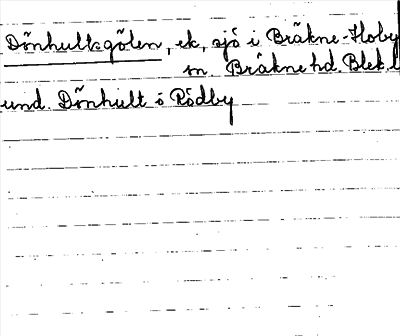 Dönhultsgölen, ek, sjö i Bräkne-Hoby
sn. Bräkne hd. Blek. l
und. Dönhult o Rödby